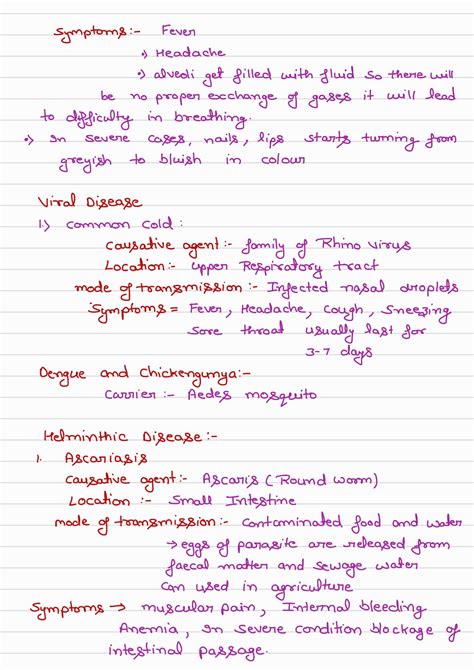 Symptoms :- Fever
•) Headache
•) alvedi get filled with fluid so there will
be no proper exchange of gases it will lead
to difficulty in breathing.
•) In severe cases, nails, lips starts turning from
greyish to bluish in colour
Viral Disease
1.) Common Cold :
Causative agent :- family of Rhino Virus
Location :- Upper Respiratory tract
mode of transmission :- Infected nasal droplets
Symptoms = Fever, Headache, Cough, Sneezing
Sore throat usually last for
3-7 days
Dengue and Chickengunya :-
Carrier :- Aedes mosquito
Helminthic Disease :-
1. Ascariasis
Causative agent :- Ascaris (Round worm)
Location :- Small Intestine
mode of transmission :- Contaminated food and water
→ eggs of parasite are released from
faecal matter and sewage water
can used in agriculture
Symptoms → muscular pain, Internal bleeding
Anemia, In severe condition blockage of
intestinal passage.